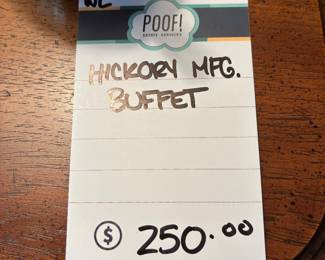 WL
POOF!
estate services
HICKORY MFG.
BUFFET
$ 250.00